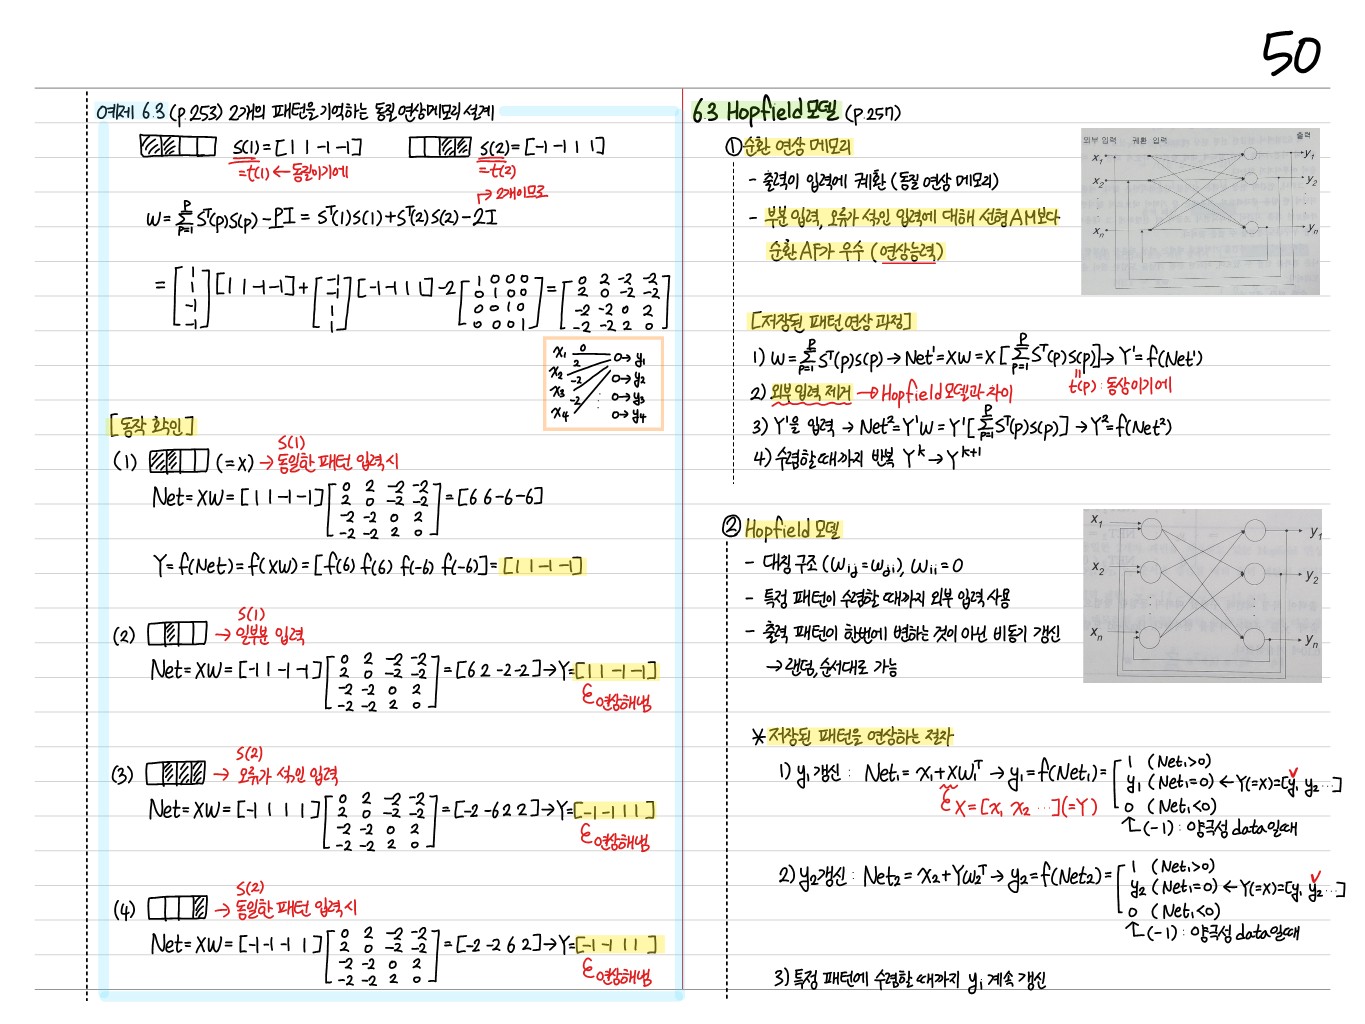 50
예제 6.3 (p.253) 2개의 패턴을 기억하는 동질 연상메모리 설계
S(1)=[1 1 -1 -1]
=t(1) ← 동질이기에
S(2)=[-1 -1 1 1]
=t(2)
→ 2개이므로
W = Σ(p=1→P) Sᵀ(p)S(p) - PI = Sᵀ(1)S(1)+Sᵀ(2)S(2)-2I
= [1 1 -1 -1]ᵀ [1 1 -1 -1] + [-1 -1 1 1]ᵀ [-1 -1 1 1] - 2 [1 0 0 0; 0 1 0 0; 0 0 1 0; 0 0 0 1] = [0 2 -2 -2; 2 0 -2 -2; -2 -2 0 2; -2 -2 2 0]
x₁ 0 0→y₁
x₂ 2 0→y₂
x₃ -2 0→y₃
x₄ -2 0→y₄
[동작 확인]
S(1)
(1) (=X) → 동일한 패턴 입력 시
Net=XW=[1 1 -1 -1] [0 2 -2 -2; 2 0 -2 -2; -2 -2 0 2; -2 -2 2 0] = [6 6 -6 -6]
Y=f(Net)=f(XW)=[f(6) f(6) f(-6) f(-6)]=[1 1 -1 -1]
S(1)
(2) → 일부분 입력
Net=XW=[-1 1 -1 -1] [0 2 -2 -2; 2 0 -2 -2; -2 -2 0 2; -2 -2 2 0] = [6 2 -2 -2]→Y=[1 1 -1 -1]
연상해냄
S(2)
(3) → 오류가 섞인 입력
Net=XW=[-1 1 1 1] [0 2 -2 -2; 2 0 -2 -2; -2 -2 0 2; -2 -2 2 0] = [-2 -6 2 2]→Y=[-1 -1 1 1]
연상해냄
S(2)
(4) → 동일한 패턴 입력 시
Net=XW=[-1 -1 -1 1] [0 2 -2 -2; 2 0 -2 -2; -2 -2 0 2; -2 -2 2 0] = [-2 -2 6 2]→Y=[-1 -1 1 1]
연상해냄
6.3 Hopfield 모델 (p.257)
① 순환 연상 메모리
- 출력이 입력에 궤환 (동질 연상 메모리)
- 부분 입력, 오류가 섞인 입력에 대해 선형 AM보다
순환 AF가 우수 (연상능력)
외부 입력 궤환 입력 출력
x₁ y₁
x₂ y₂
xₙ yₙ
[저장된 패턴 연상 과정]
1) W = Σ(p=1→P) Sᵀ(p)S(p) → Net¹=XW=X[Σ(p=1→P) Sᵀ(p)S(p)] → Y¹=f(Net¹)
t(p) : 동상이기에
2) 외부 입력 제거 → Hopfield 모델과 차이
3) Y¹을 입력 → Net²=Y¹W=Y¹[Σ(p=1→P) Sᵀ(p)S(p)] → Y²=f(Net²)
4) 수렴할 때까지 반복 Yᵏ→Yᵏ⁺¹
② Hopfield 모델
- 대칭 구조 (wᵢⱼ=wⱼᵢ), wᵢᵢ=0
- 특정 패턴이 수렴할 때까지 외부 입력 사용
- 출력 패턴이 한번에 변하는 것이 아닌 비동기 갱신
→ 랜덤, 순서대로 가능
x₁ y₁
x₂ y₂
xₙ yₙ
* 저장된 패턴을 연상하는 절차
1) y₁ 갱신 : Net₁=x₁+XW₁ᵀ → y₁=f(Net₁)= [1 (Net₁>0)
y₁ (Net₁=0) ← Y(=X)=[y₁ y₂ …]
0 (Net₁<0)
X=[x₁ x₂ …](=Y)
(-1) : 양극성 data일때
2) y₂ 갱신 : Net₂=x₂+YW₂ᵀ → y₂=f(Net₂)= [1 (Net₁>0)
y₂ (Net₁=0) ← Y(=X)=[y₁ y₂ …]
0 (Net₁<0)
(-1) : 양극성 data일때
3) 특정 패턴에 수렴할 때까지 yᵢ 계속 갱신